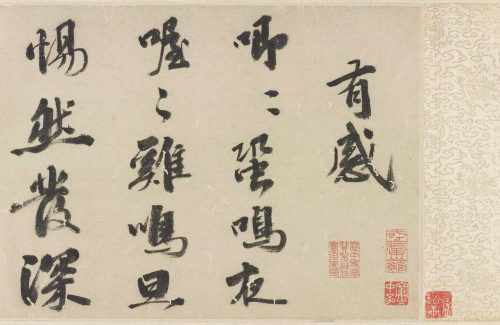 有感
唧〻蛩鳴夜
喔〻雞鳴旦
惕然發深